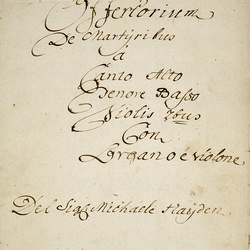 Offertorium
De Martyribus
à
Canto Alto
Tenore Basso
Violis 2bus
Con
Organo è violone
Del Sigl Michaele Hayden